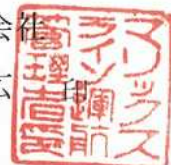 会社
印
マリックス
ライン運航
管理者印